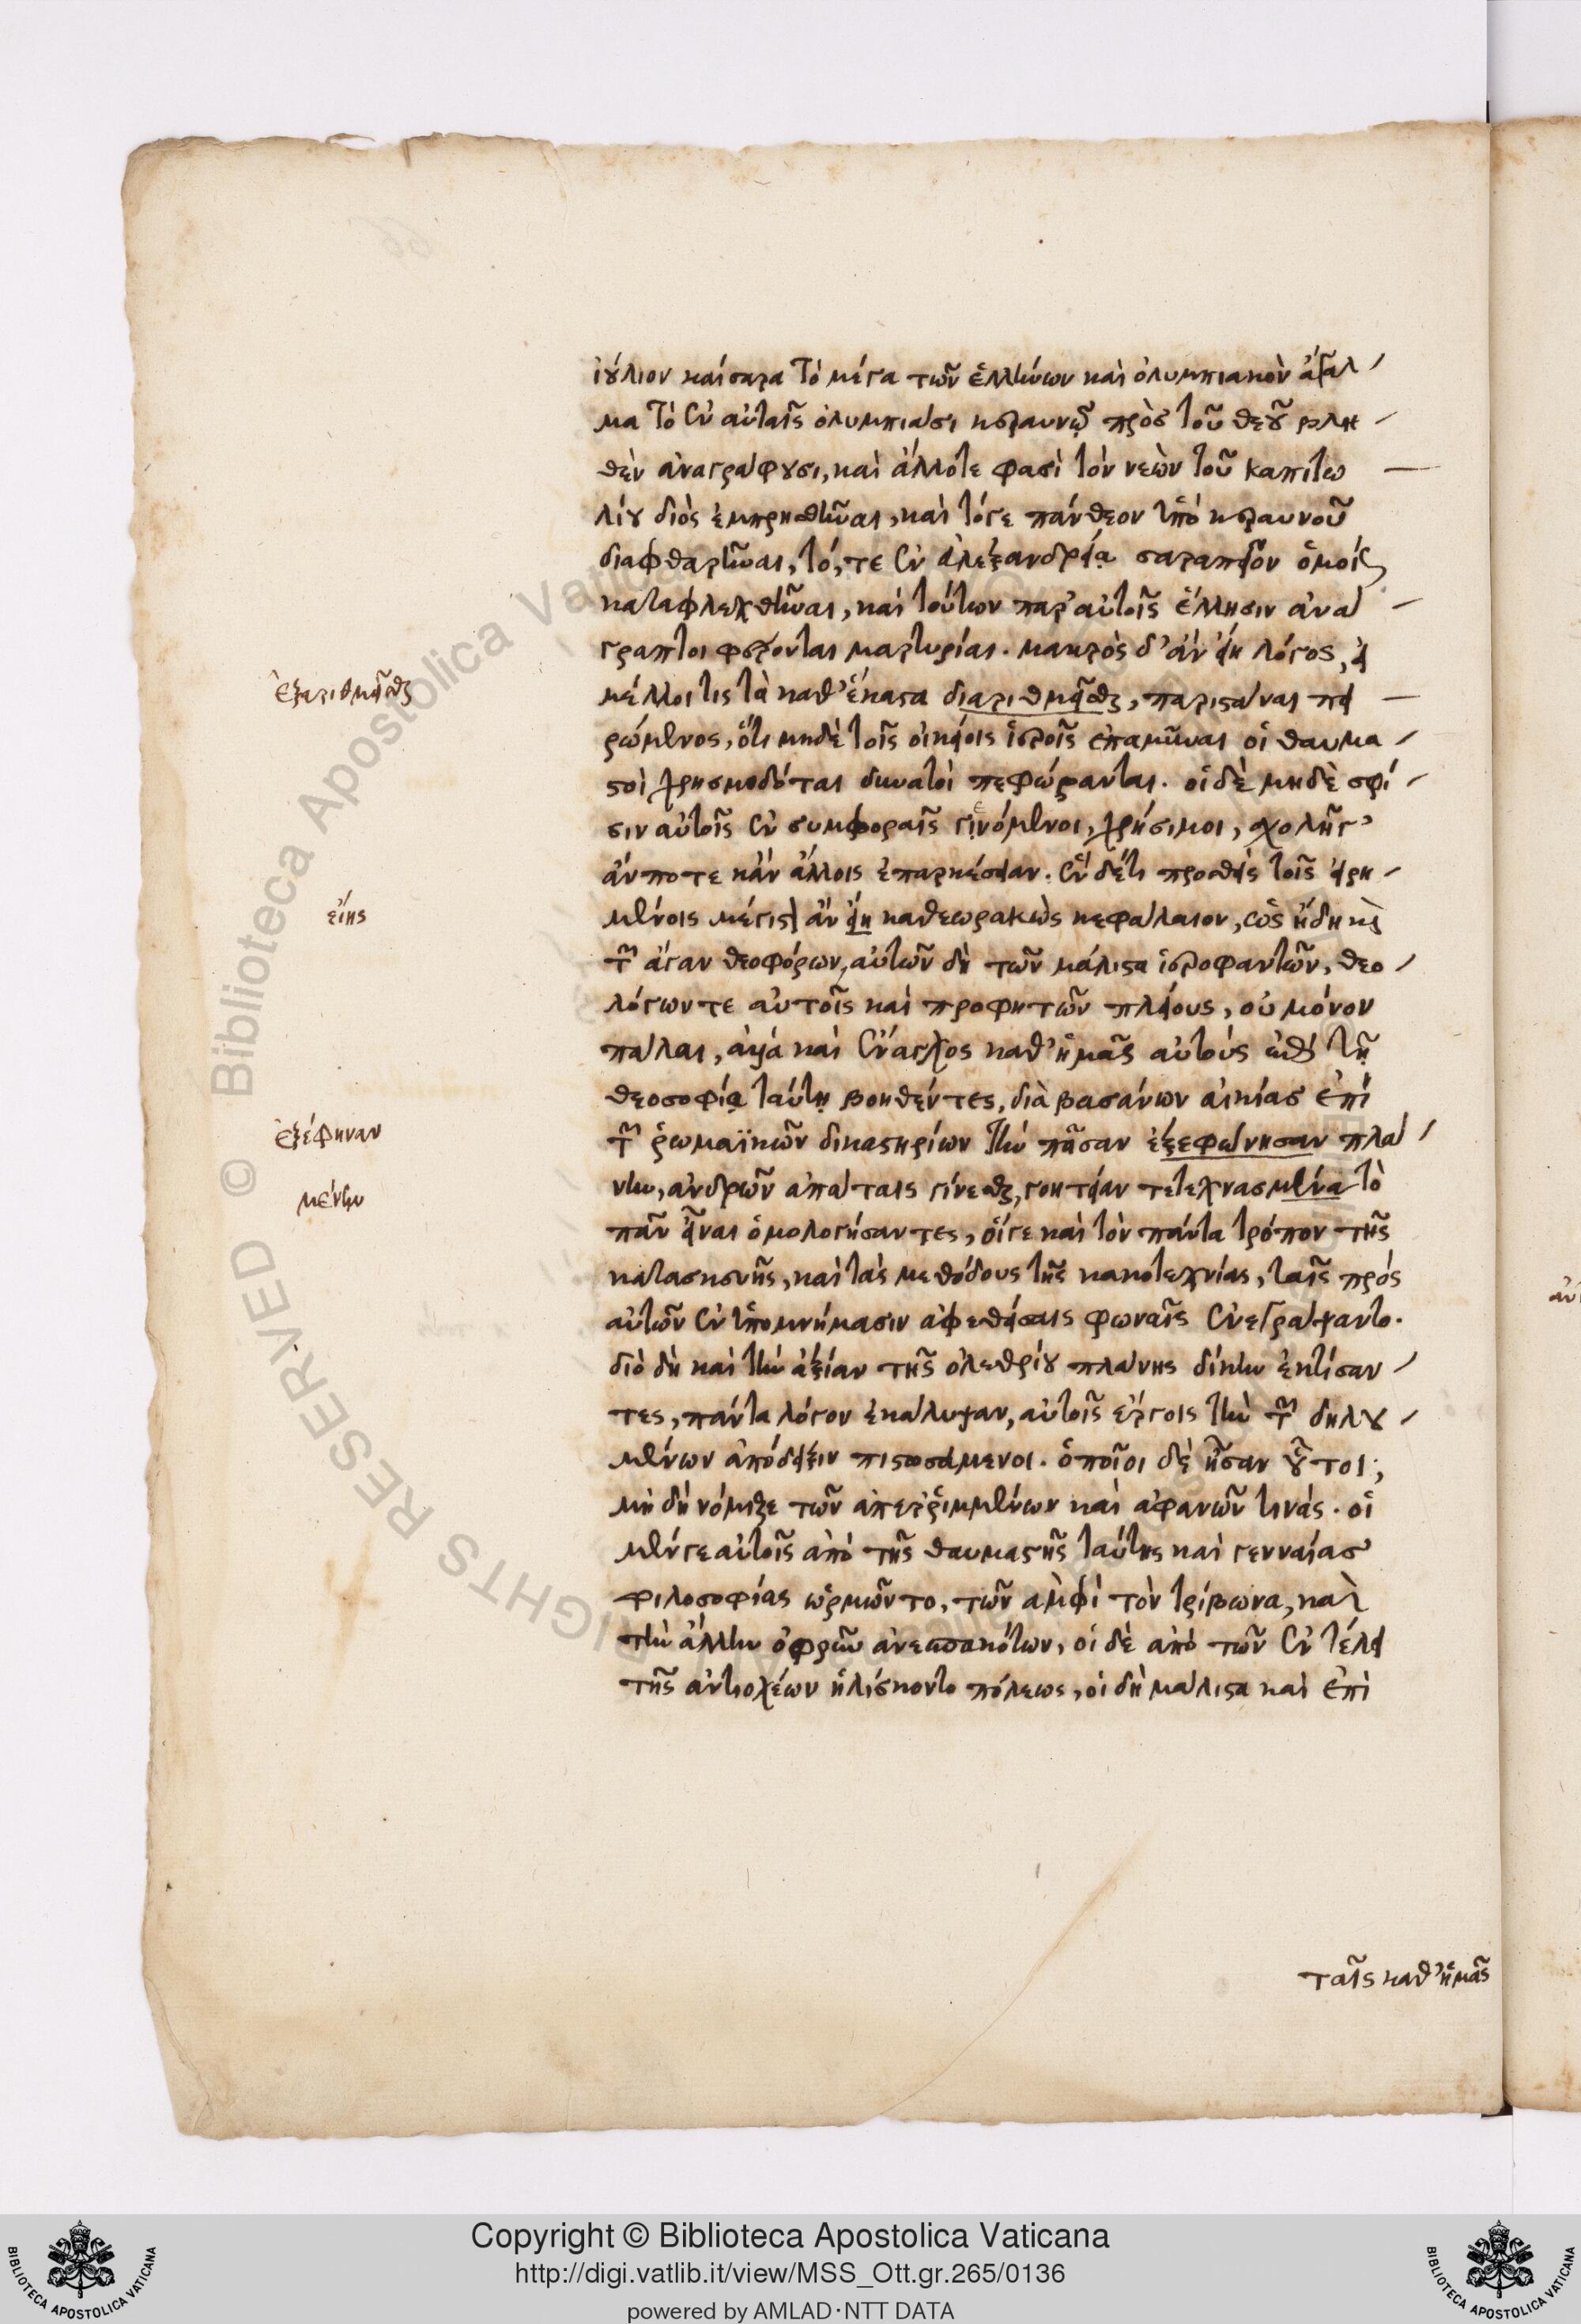 ἰούλιον καίσαρα τὸ μέγα τῶν ἑλλήνων καὶ ὀλυμπιακὸν ἄγαλ
μα τὸ ἐν αὐταῖς ὀλυμπιάσι κεραυνῷ πρὸς τοῦ θεοῦ βλη
θὲν ἀναγράφουσι, καὶ ἄλλοτε φασὶ τὸν νεὼν τοῦ καπιτω
λίου διὸς ἐμπρησθῆναι, καὶ τόγε πάνθεον ὑπὸ κεραυνοῦ
διαφθαρῆναι, τό, τε ἐν ἀλεξανδρείᾳ σαραπεῖον ὁμοίως
καταφλεχθῆναι, καὶ τούτων παρ' αὐτοῖς ἕλλησιν ἀνά
γραπτοι φέρονται μαρτυρίαι. μακρὸς δ' ἂν εἴη λόγος, εἰ
ἐξαριθμεῖσθαι
μέλλοι τις τὰ καθ' ἕκαστα διαριθμεῖσθαι, παριστάναι πει
ρώμενος, ὅτι μηδὲ τοῖς οἰκείοις ἱεροῖς ἐπαμῦναι οἱ θαυμα
στοὶ χρησμοδόται δυνατοὶ πεφώρανται. οἱ δὲ μηδὲ σφί
σιν αὐτοῖς ἐν συμφοραῖς γινόμενοι, χρήσιμοι, σχολῇ γ'
ἄν ποτε κἂν ἄλλοις ἐπαρκέσειαν. ἓν δέ τι προσθεὶς τοῖς εἰρη
εἴης
μένοις μέγιστον ἂν εἴη καθεωρακὼς κεφάλαιον, ὡς ἤδη καὶ
τῶν ἄγαν θεοφόρων, αὐτῶν δὴ τῶν μάλιστα ἱεροφαντῶν, θεο
λόγων τε αὐτοῖς καὶ προφητῶν πλείους, οὐ μόνον
πάλαι, ἀλλὰ καὶ ἔναγχος καθ' ἡμᾶς αὐτοὺς ἐπὶ τῇ
θεοσοφίᾳ ταύτῃ βοηθέντες, διὰ βασάνων αἰκίας ἐπὶ
ἐξέφηναν
τῶν ῥωμαϊκῶν δικαστηρίων τὴν πᾶσαν ἐξεφώνησαν πλά
μένην
νην, ἀνδρῶν ἀπάταις γίνεσθαι, γοητείαν τετεχνασμένα τὸ
πᾶν εἶναι ὁμολογήσαντες, οἵγε καὶ τὸν πάντα τρόπον τῆς
κατασκευῆς, καὶ τὰς μεθόδους τῆς κακοτεχνίας, ταῖς πρὸς
αὐτῶν ἐν ὑπομνήμασιν ἀφεθείσαις φωναῖς ἐνεγράψαντο.
διὸ δὴ καὶ τὴν ἀξίαν τῆς ὀλεθρίου πλάνης δίκην ἐκτίσαν
τες, πάντα λόγον ἐκάλυψαν, αὐτοῖς ἔργοις τὴν τῶν δηλου
μένων ἀπόδειξιν πιστωσάμενοι. ὁποῖοι δὲ ἦσαν οὗτοι;
μὴ δὴ νόμιζε τῶν ἀπερριμμένων καὶ ἀφανῶν τινάς. οἱ
μέν γε αὐτοῖς ἀπὸ τῆς θαυμαστῆς ταύτης καὶ γενναίας
φιλοσοφίας ὡρμῶντο, τῶν ἀμφὶ τὸν τρίβωνα, καὶ
τὴν ἄλλην ὀφρῦν ἀνεσπακότων, οἱ δὲ ἀπὸ τῶν ἐν τέλει
τῆς ἀντιοχέων ἡλίσκοντο πόλεως, οἱ δὴ μάλιστα καὶ ἐπὶ
ταῖς καθ' ἡμᾶς
Copyright © Biblioteca Apostolica Vaticana
http://digi.vatlib.it/view/MSS_Ott.gr.265/0136
powered by AMLAD·NTT DATA